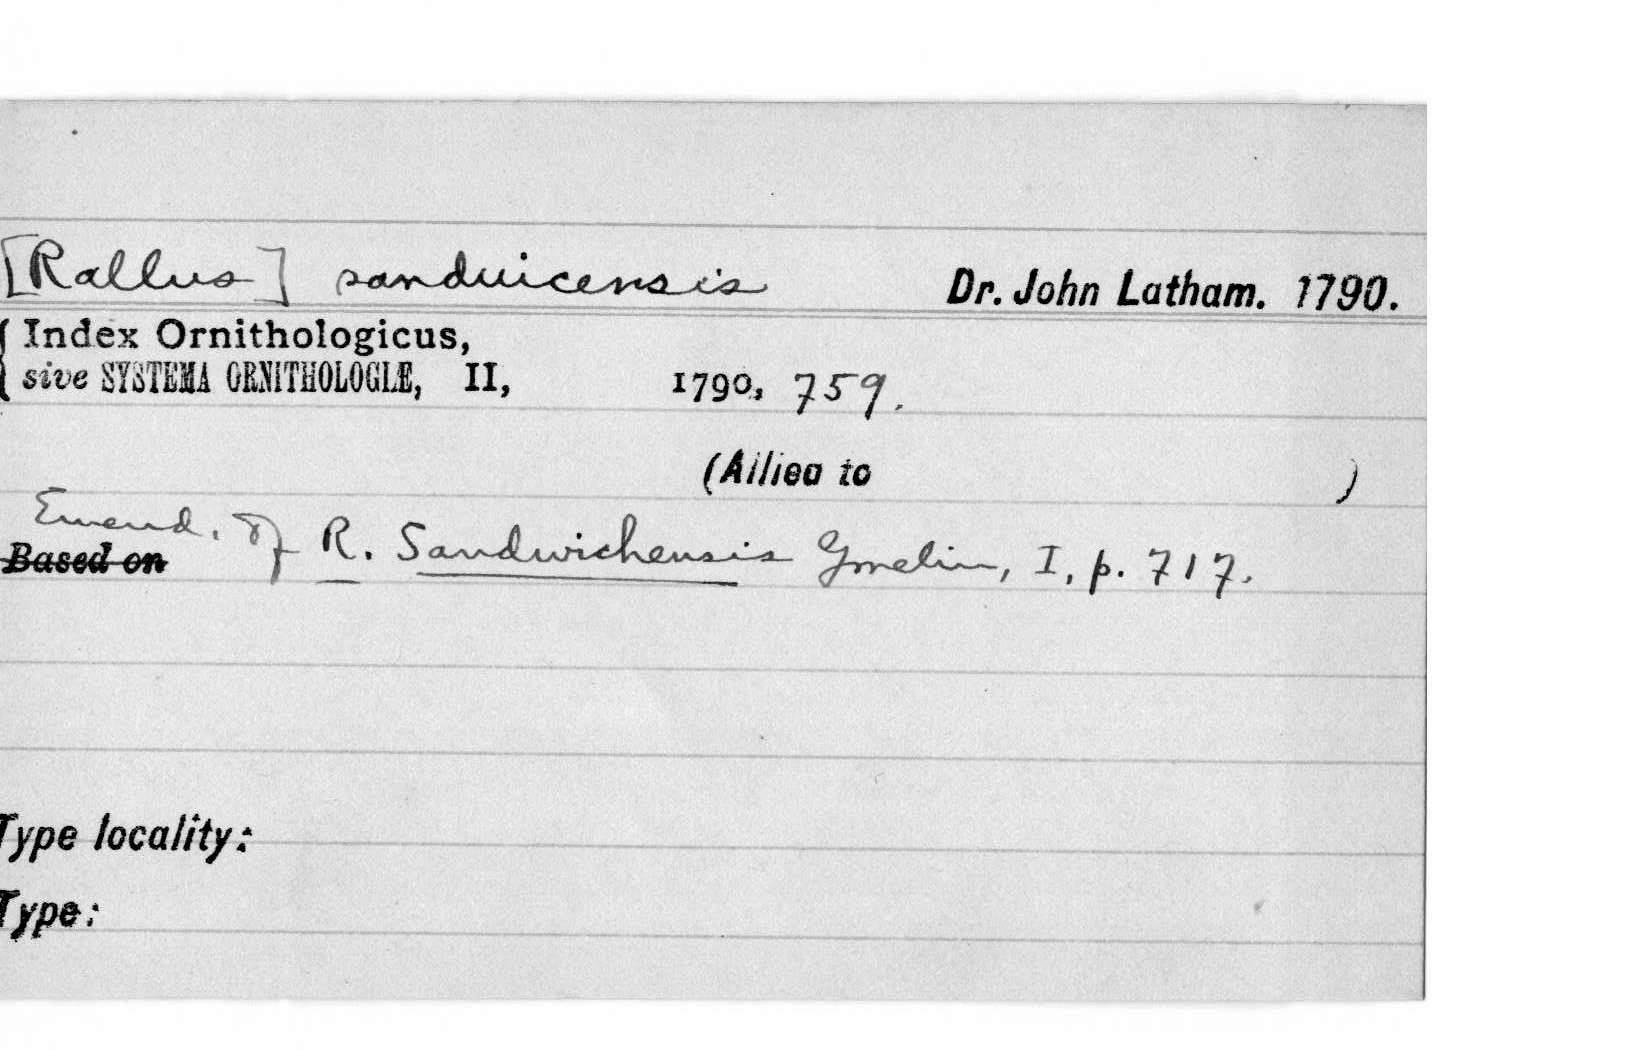 [Rallus] sanduicensis Dr. John Latham. 1790.
Index Ornithologicus,
sive SYSTEMA ORNITHOLOGIÆ, II, 1790, 759.
(Allied to )
Emend. of R. Sandwichensis Gmelin, I, p. 717.
Based on
Type locality:
Type: